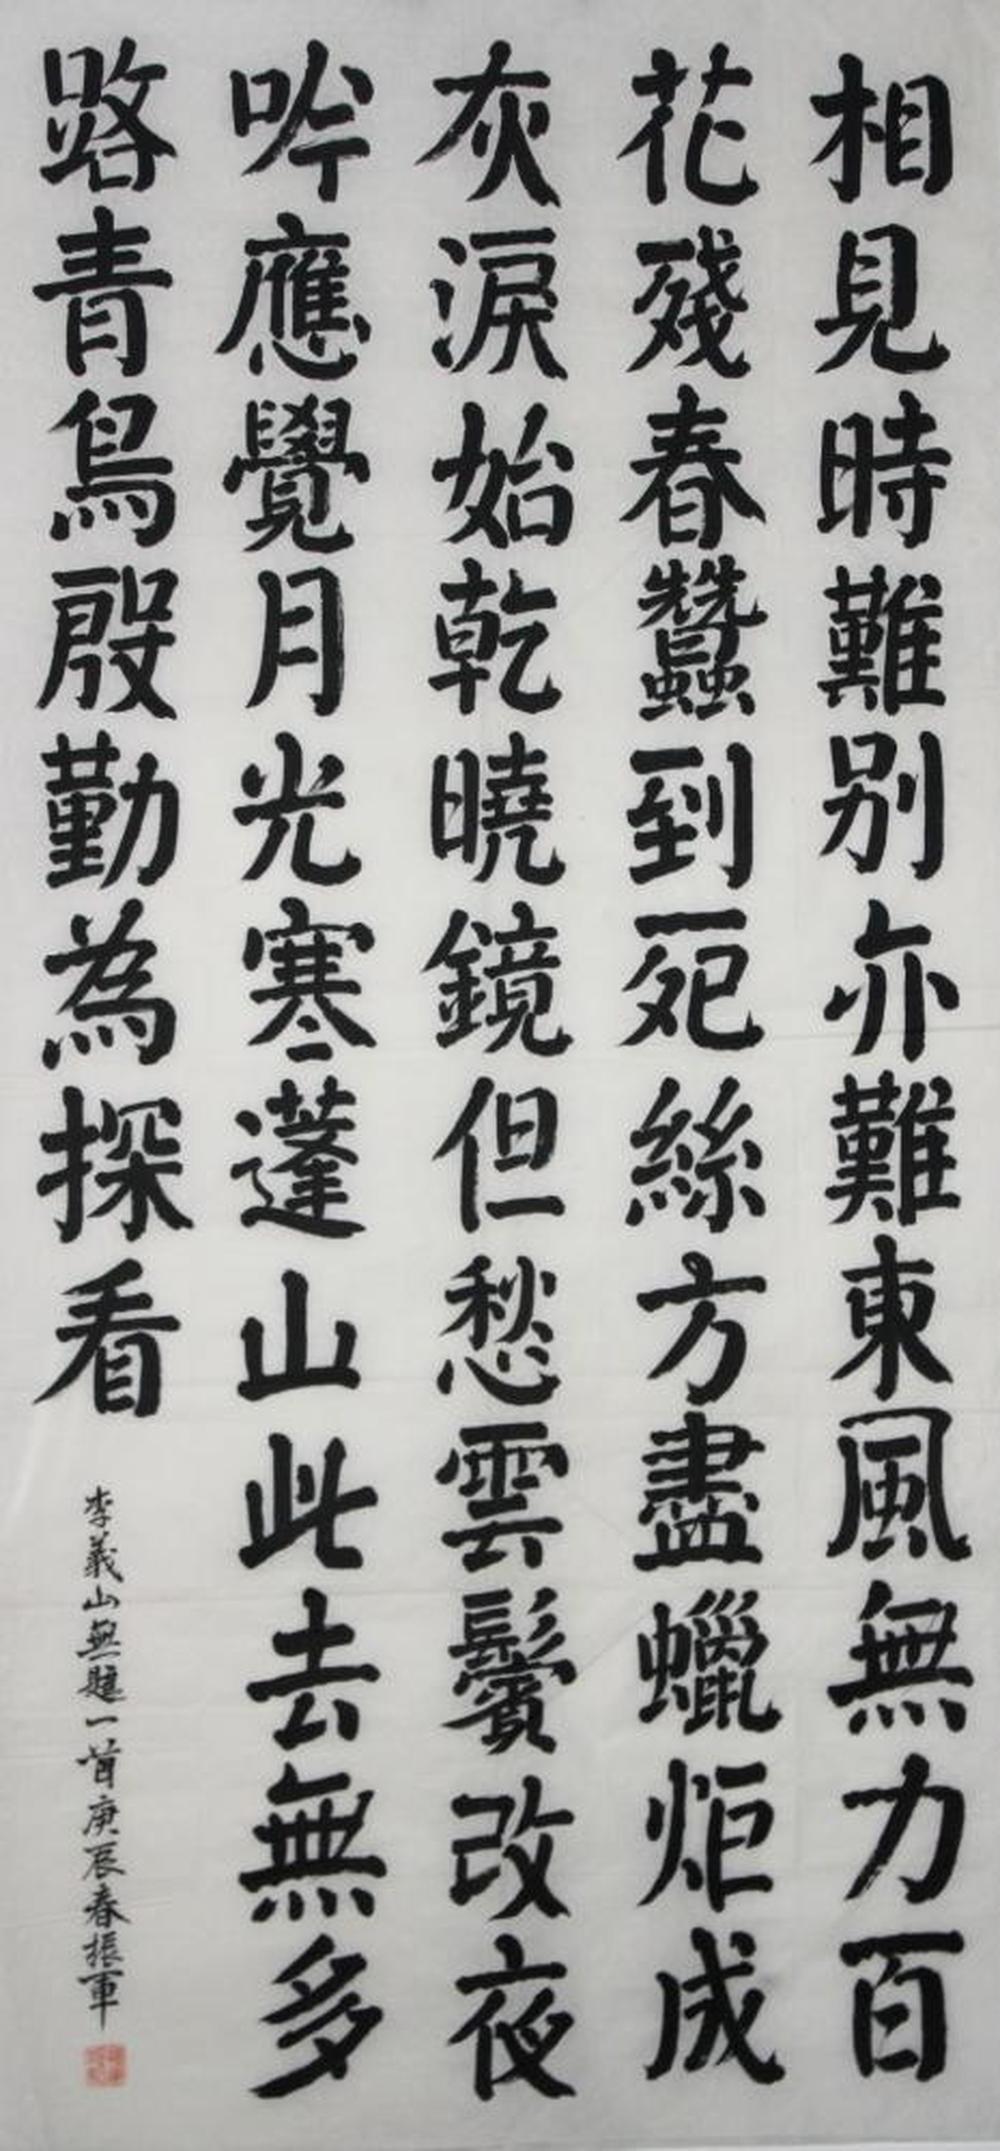 相見時難别亦難東風無力百
花殘春蠶到死絲方盡蠟炬成
灰淚始乾曉鏡但愁雲鬢改夜
吟應覺月光寒蓬山此去無多
路青鳥殷勤為探看
李義山無題一首庚辰春振軍